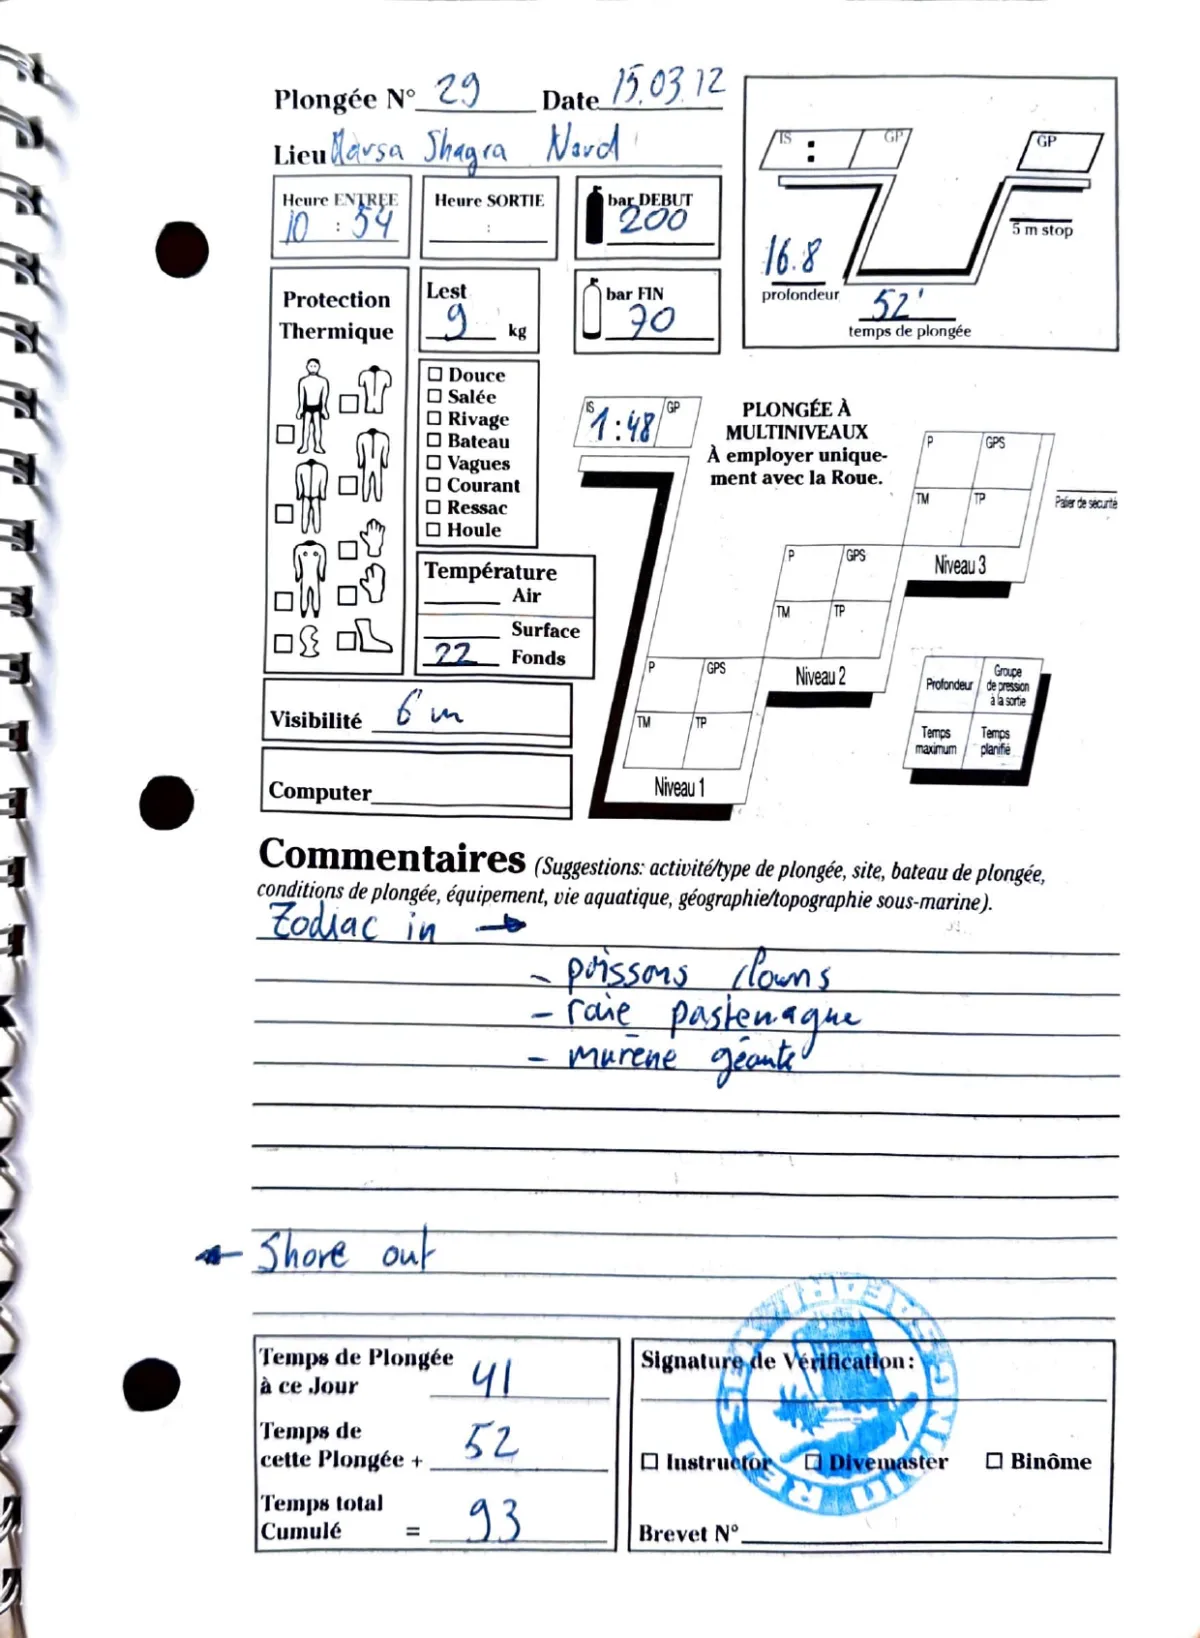 Plongée N° 29 Date 15.03.12
Lieu Marsa Shagra Nord
Heure ENTREE
10 : 54
Heure SORTIE
:
bar DEBUT
200
IS : GP
GP
5 m stop
16.8
profondeur
52'
temps de plongée
Protection
Thermique
Lest
9 kg
bar FIN
70
☐ Douce
☐ Salée
☐ Rivage
☐ Bateau
☐ Vagues
☐ Courant
☐ Ressac
☐ Houle
Température
Air
Surface
22 Fonds
Visibilité 6 m
Computer
IS 1:48 GP
PLONGÉE À
MULTINIVEAUX
À employer unique-
ment avec la Roue.
P GPS
TM TP
Niveau 3
Palier de sécurité
P GPS
TM TP
Niveau 2
P GPS
TM TP
Niveau 1
Profondeur
Groupe
de pression
à la sortie
Temps
maximum
Temps
planifié
Commentaires (Suggestions: activité/type de plongée, site, bateau de plongée,
conditions de plongée, équipement, vie aquatique, géographie/topographie sous-marine).
Zodiac in →
- poissons clowns
- raie pastenague
- murène géante
← Shore out
Temps de Plongée
à ce Jour 41
Temps de
cette Plongée + 52
Temps total
Cumulé = 93
Signature de Vérification:
☐ Instructor ☐ Divemaster ☐ Binôme
Brevet N°
RED SEA DIVING SAFARI